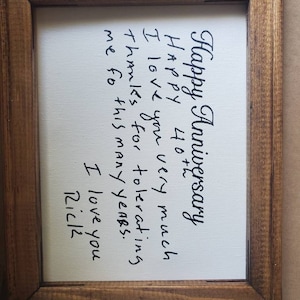 Happy Anniversary
Happy 40th
I love you very much
Thanks for tolerating
me fo this many years.
I love you
Rick